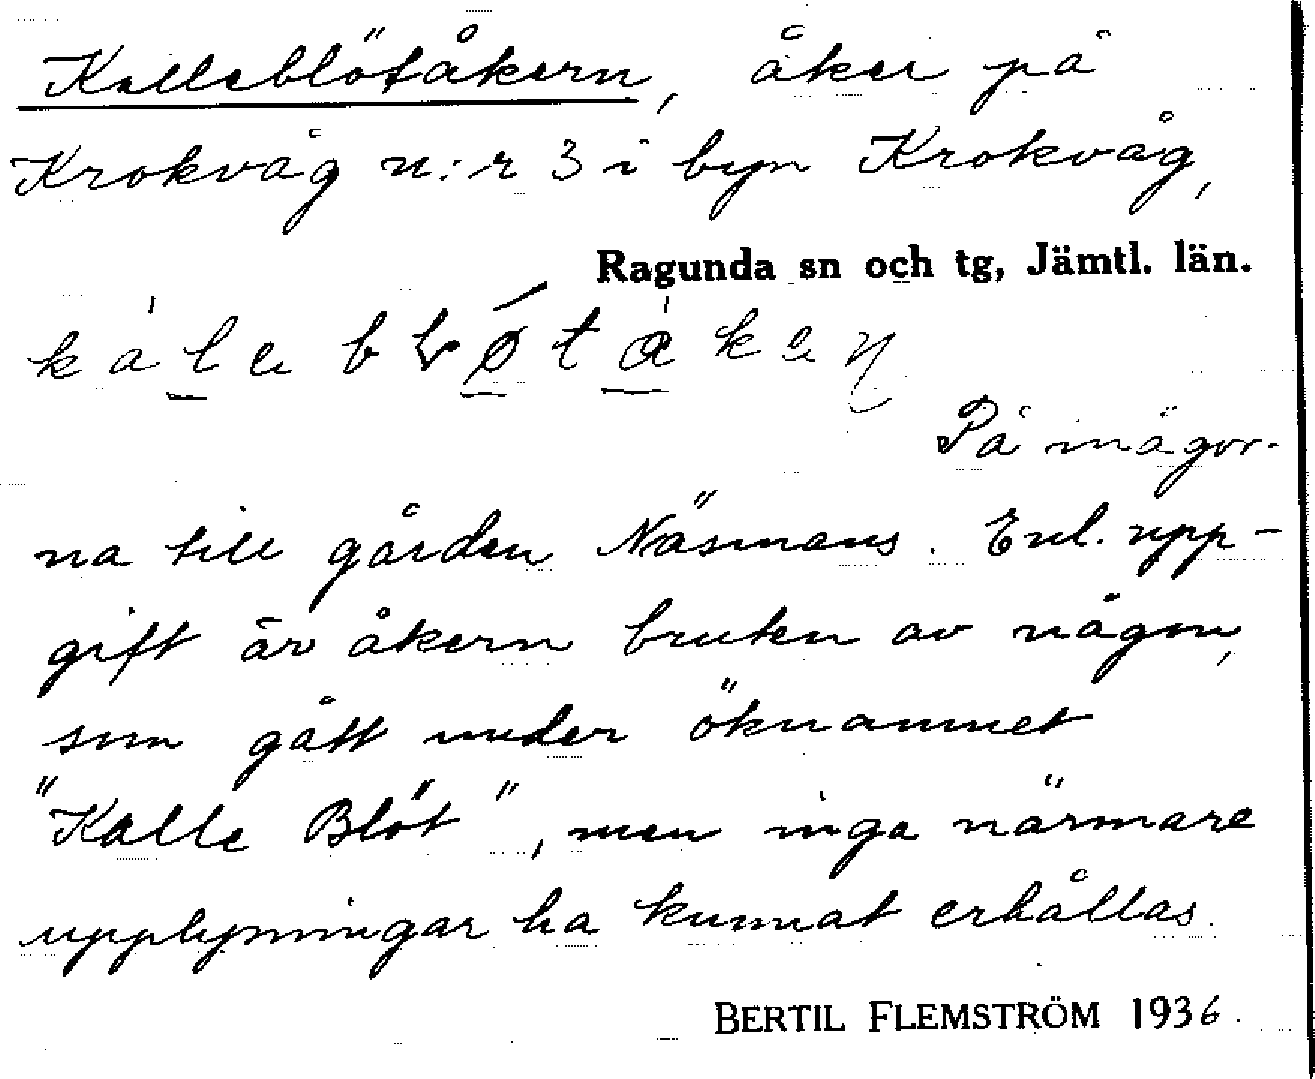 Kalleblötåkern, åker på
Krokvåg n:r 3 i byn Krokvåg,
Ragunda sn och tg, Jämtl. län.
På mågor-
na till gården Näsmans. Enl. upp-
gift är åkern bruten av någon,
som gått under öknamnet
"Kalle Blöt", men inga närmare
upplysningar ha kunnat erhållas.
BERTIL FLEMSTRÖM 1936.